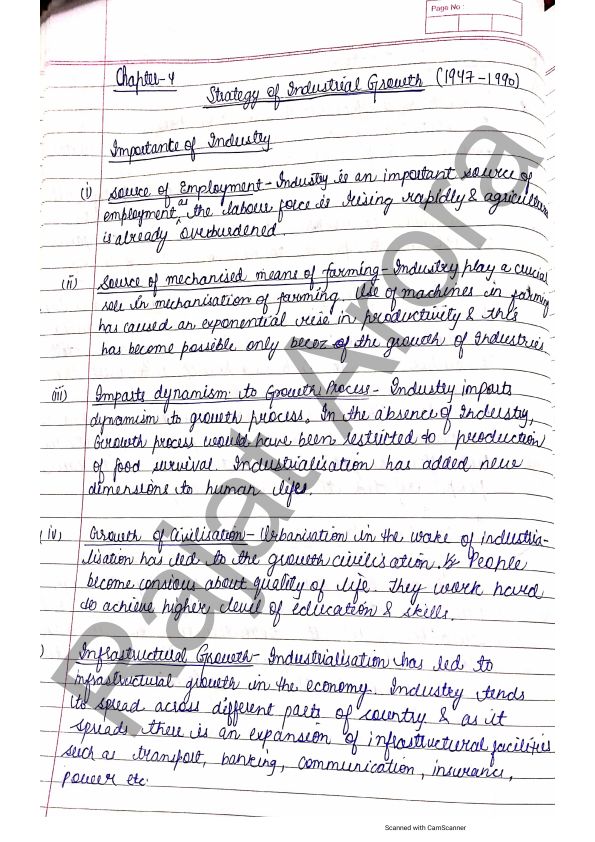 Page No :
Chapter-4
Strategy of Industrial Growth (1947-1990)
Importante of Industry
(i) Source of Employment - Industry is an important source of
employment, as the labour force is rising rapidly & agriculture
is already overburdened.
(ii) Source of mechanised means of farming - Industry play a crucial
role in mechanisation of farming. Use of machines in farming
has caused an exponential rise in productivity & this
has become possible only becoz of the growth of Industries
(iii) Imparts dynamism to Growth Process - Industry imparts
dynamism to growth process. In the absence of Industry,
Growth process would have been restricted to production
of food survival. Industrialisation has added new
dimensions to human life.
(iv) Growth of Civilisation - Urbanisation in the wake of industria-
lisation has led to the growth civilisation. People
become consious about quality of life. They work hard
to achieve higher level of education & skills.
) Infrastructural Growth - Industrialisation has led to
infrastructural growth in the economy. Industry tends
to spread across different parts of country & as it
spreads there is an expansion of infrastructural facilities
such as transport, banking, communication, insurance,
power etc.
Rajat Arora
Scanned with CamScanner